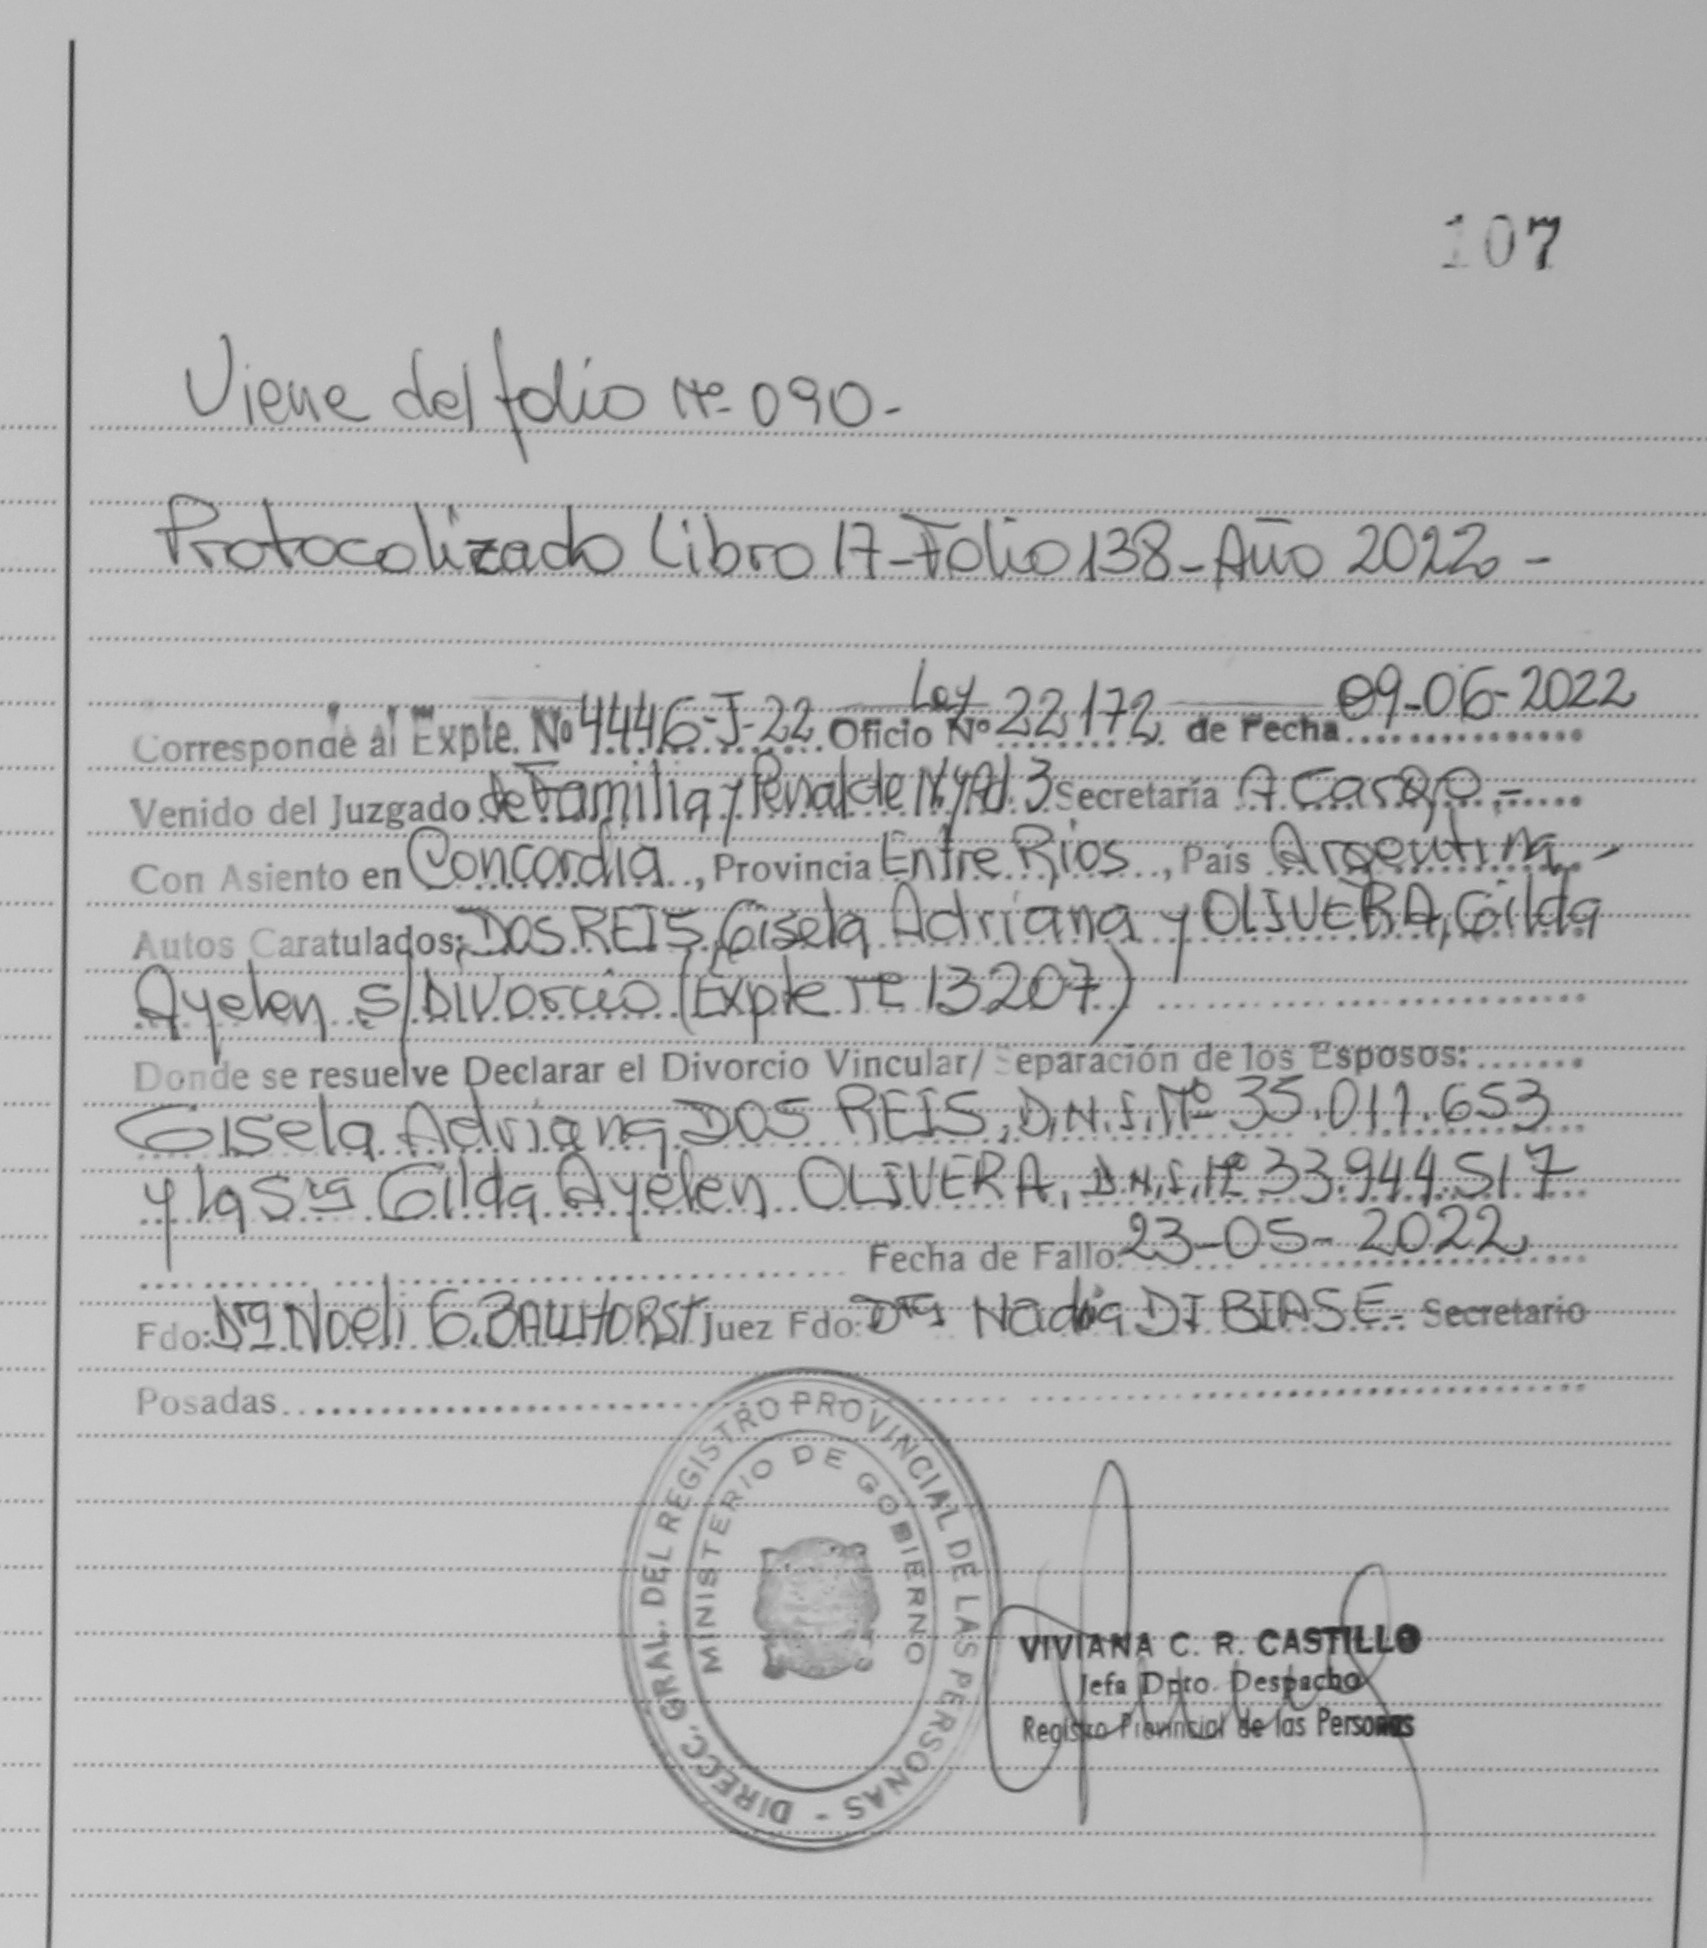 107
Viene del folio Nº 090-
Protocolizado Libro 17-Folio 138-Año 2022-
Corresponde al Expte. Nº 4446-J-22 Oficio Nº Ley 22172 de Fecha 09-06-2022
Venido del Juzgado de Familia y Penal de N.y Ad. 3 Secretaría A Cargo.-
Con Asiento en Concordia, Provincia Entre Ríos, País Argentina.-
Autos Caratulados: DOS REIS, Gisela Adriana y OLIVERA, Gilda
Ayelen s/DIVorcio (Expte nº 13207)
Donde se resuelve Declarar el Divorcio Vincular/ Separación de los Esposos:
Gisela Adriana DOS REIS, D.N.I. Nº 35.011.653
y la Sra Gilda Ayelen OLIVERA, D.N.I. Nº 33.944.517
Fecha de Fallo: 23-05-2022
Fdo: Dra Noeli G. BALLHORST Juez Fdo: Dra Nadia DI BIASE- Secretario
Posadas
DIRECC. GRAL. DEL REGISTRO PROVINCIAL DE LAS PERSONAS -
MINISTERIO DE GOBIERNO
VIVIANA C. R. CASTILLO
Jefa Dpto. Despacho
Registro Provincial de las Personas